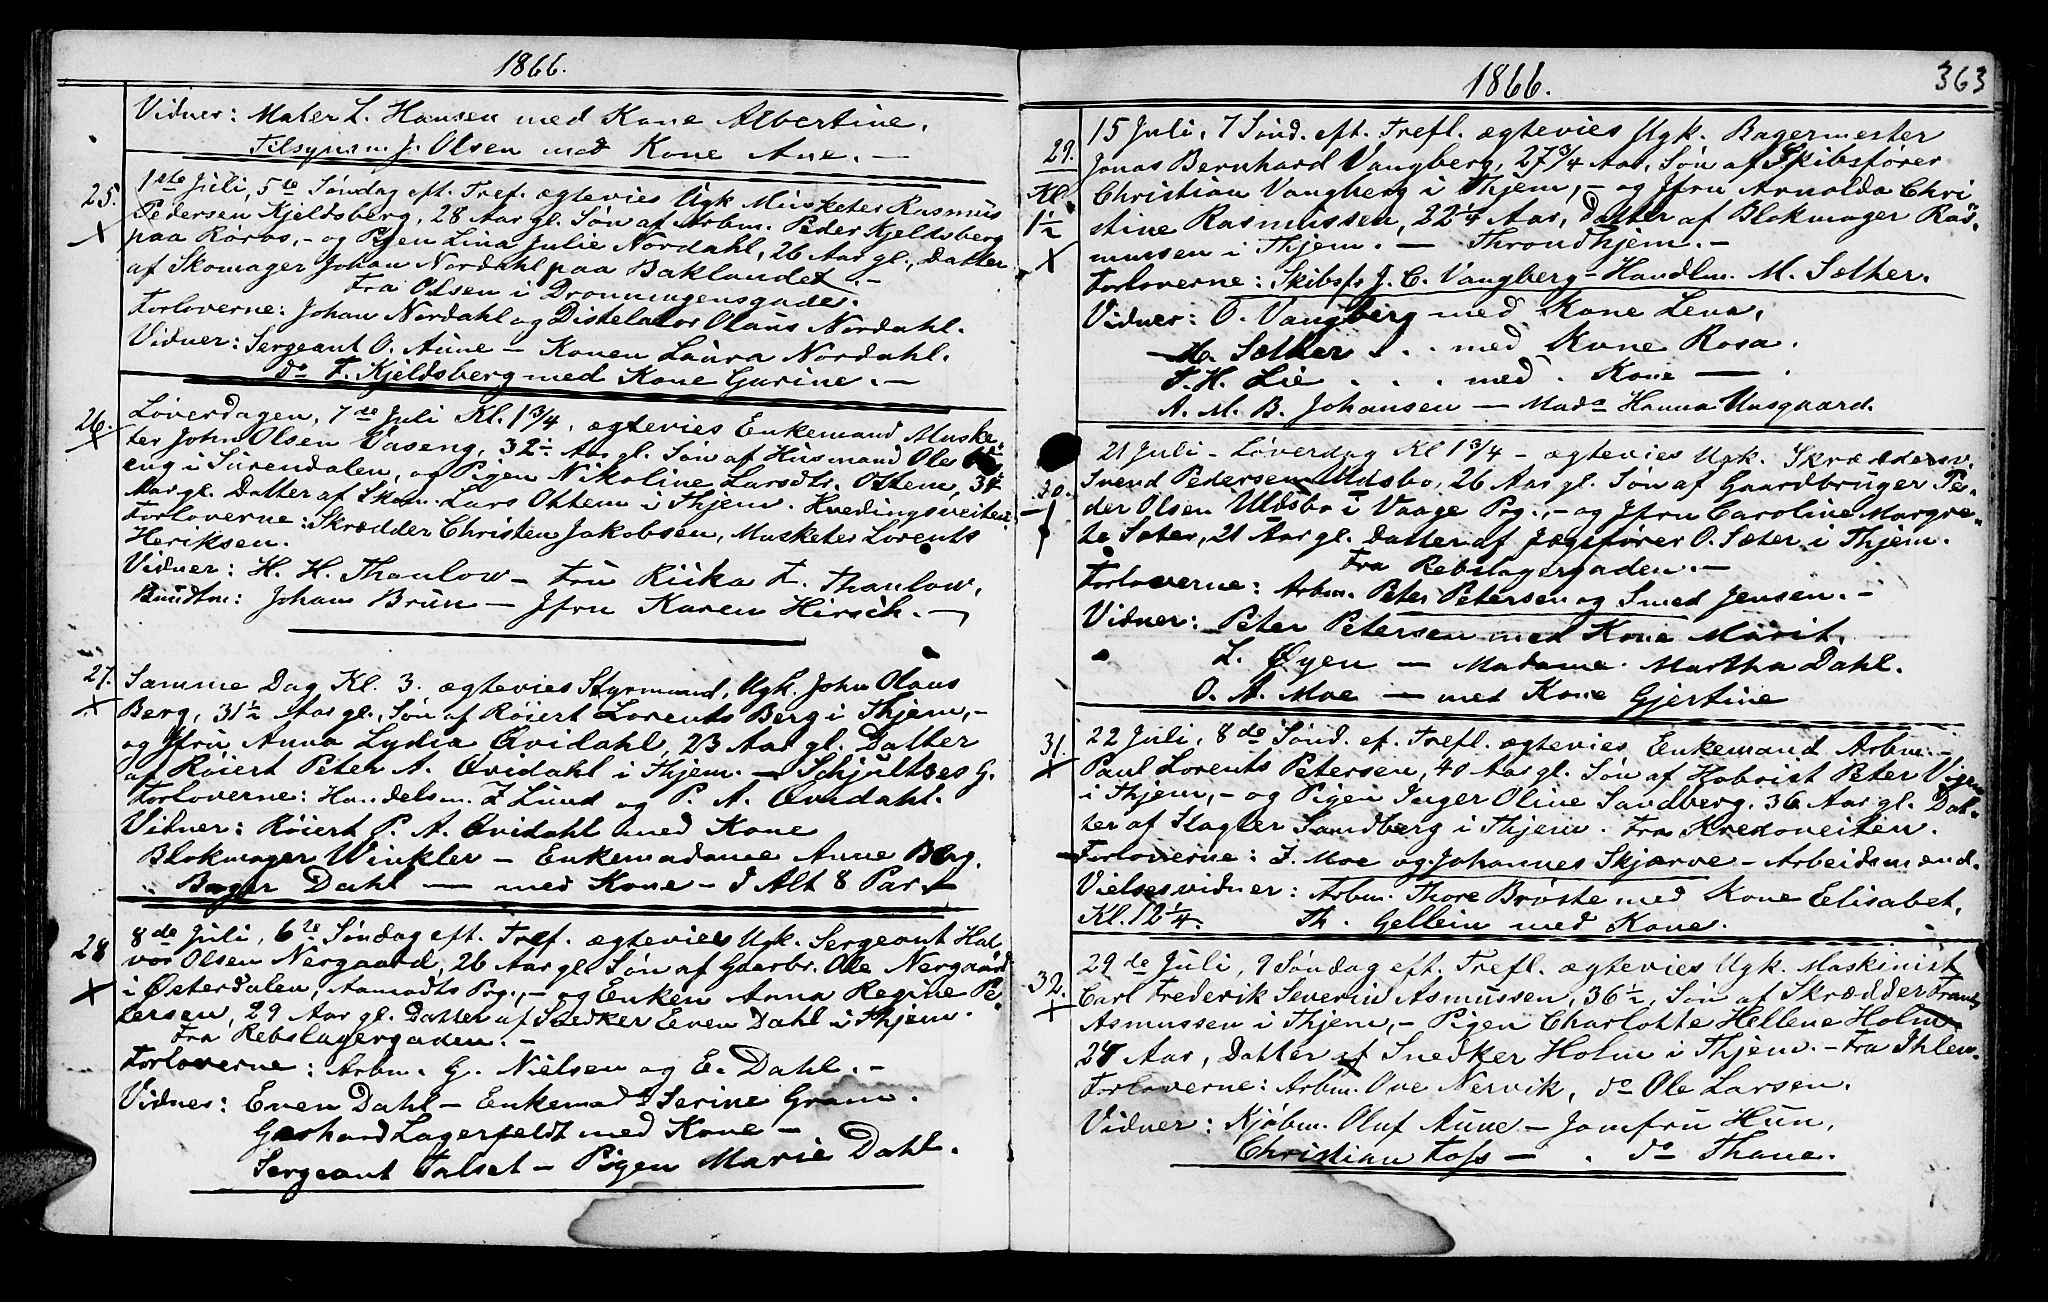 1866.
Vidner: Maler L. Hansen med Kone Albertine.
Tilsynsm. J. Olsen med Kone Ane. —
25. 1ste Juli, 5te Søndag eft. Tref. ægtevies Ugk Musketer Rasmus
Pedersen Kjeldsberg, 28 Aar gl. Søn af Arbm. Peder Kjeldsberg
paa Røros, - og Pigen Lina Julie Nordahl, 26 Aar gl., Datter
af Skomager Johan Nordahl paa Baklandet. -
Fra Olsen i Dronningensgade.
Forloverne: Johan Nordahl og Distelator Olaus Nordahl.
Vidner: Sergeant O. Aune - Konen Laura Nordahl.
do T. Kjeldsberg med Kone Gurine. —
26. Løverdagen, 7de Juli Kl. 1 3/4, ægtevies Enkemand Muske-
ter John Olsen Vaseng, 32 1/2 Aar gl. Søn af Husmand Ole
eng i Surendalen, og Pigen Nikoline Larsdtr. Ottem, 34
Aar gl. Datter af Skom. Lars Ottem i Thjem. Hvedingsveiten
Forloverne: Skrædder Christen Jakobsen, Musketer Lorents
Heriksen.
Vidner: H. H. Thanlow - Fru Rika T. Thanlow.
Bundtm: Johan Brun - Jfru Karen Hirsch. —
27. Samme Dag Kl. 3. ægtevies Styrmand, Ugk. John Olaus
Berg, 31 1/2 Aar gl., Søn af Røiert Lorents Berg i Thjem, -
og Jfru Anna Lydia Qvidahl, 23 Aar gl. Datter
af Røiert Peter A. Qvidahl i Thjem. - Schjultzes G.
Forloverne: Handelsm. Z Lund og P. A. Qvidahl.
Vidner: Røiert P. A. Qvidahl med Kone
Blokmager Winkler - Enkemadame Anne Berg.
Bager Dahl — med Kone - I Alt 8 Par. -
28 8de Juli, 6te Søndag eft. Tref. ægtevies Ugk. Sergeant Hal-
vor Olsen Nergaard, 26 Aar gl. Søn af Gaarbr. Ole Nergaard
i Østerdalen, Aamodts Prg., - og Enken Anna Regine Pe-
tersen, 29 Aar gl. Datter af Snedker Even Dahl i Thjem.
Fra Rebslagergaden. -
Forloverne: Arbm. G. Nielsen og E. Dahl. -
Vidner: Even Dahl - Enkemad Serine Gram.
Gerhard Lagerfeldt med Kone -
Sergeant Talset - Pigen Marie Dahl.
1866. 363
29. 15 Juli, 7 Sønd. eft. Trefl. ægtevies Ugk. Bagermester
Jonas Bernhard Vangberg, 27 3/4 Aar, Søn af Skibsfører
Kl. Christian Vangberg i Thjem, - og Jfru Arnolda Chri-
1 1/2 stine Rasmussen, 22 1/4 Aar, Datter af Blokmager Ras-
mussen i Thjem. — Throndhjem. -
Forloverne: Skibsf. J. C. Vangberg - Handlm. M. Sæther.
Vidner: O. Vangberg med Kone Lena.
M. Sæther . . med Kone Rosa.
T. H. Lie . . . med . Kone — .
A. M. B. Johansen — Made Hanna Uusgaard.
30. 21 Juli - Løverdag Kl 1 3/4 - ægtevies Ugk. Skræddersv.
Svend Pedersen Uldsbo, 26 Aar gl. Søn af Gaardbruger Pe-
der Olsen Uldsbo i Vaage Prg., - og Jfru Caroline Margre-
te Sæter, 21 Aar gl. Datter af Jægtfører O. Sæter i Thjem.
Fra Rebslagergaden. -
Forloverne: Arbm. Peter Petersen og Smed Jensen. -
Vidner: Peter Petersen med Kone Marit.
L. Øyen — Madame Martha Dahl.
O. A. Moe — med Kone Gjertine
31. 22 Juli, 8de Sønd. ef. Trefl. ægtevies Enkemand Arbm. -
Paul Lorents Petersen, 40 Aar gl. Søn af Peter
i Thjem, - og Pigen Inger Oline Sandberg, 36 Aar gl. Dat-
ter af Slagter Sandberg i Thjem. Fra Kredoveiten.
Forloverne: J. Moe og Johannes Skjærve - Arbeidsmænd.
Vielsesvidner: Arbm. Thore Brøste med Kone Elisabet,
Kl. 12 1/4. Th. Gellein med Kone.
32. 29de Juli, 9 Søndag eft. Trefl. ægtevies Ugk. Maskinist
Carl Frederik Severin Asmussen, 36 1/2, Søn af Skrædder Frants
Asmussen i Thjem, - Pigen Charlotte Hellene Holm
27 Aar, Datter af Snedker Holm i Thjem. - Fra Ihlen.
Forloverne: Arbm. Ove Nervik, do Ole Larsen.
Vidner: Kjøbm. Oluf Aune - Jomfru Hun,
Christian Foss — . do Thane.